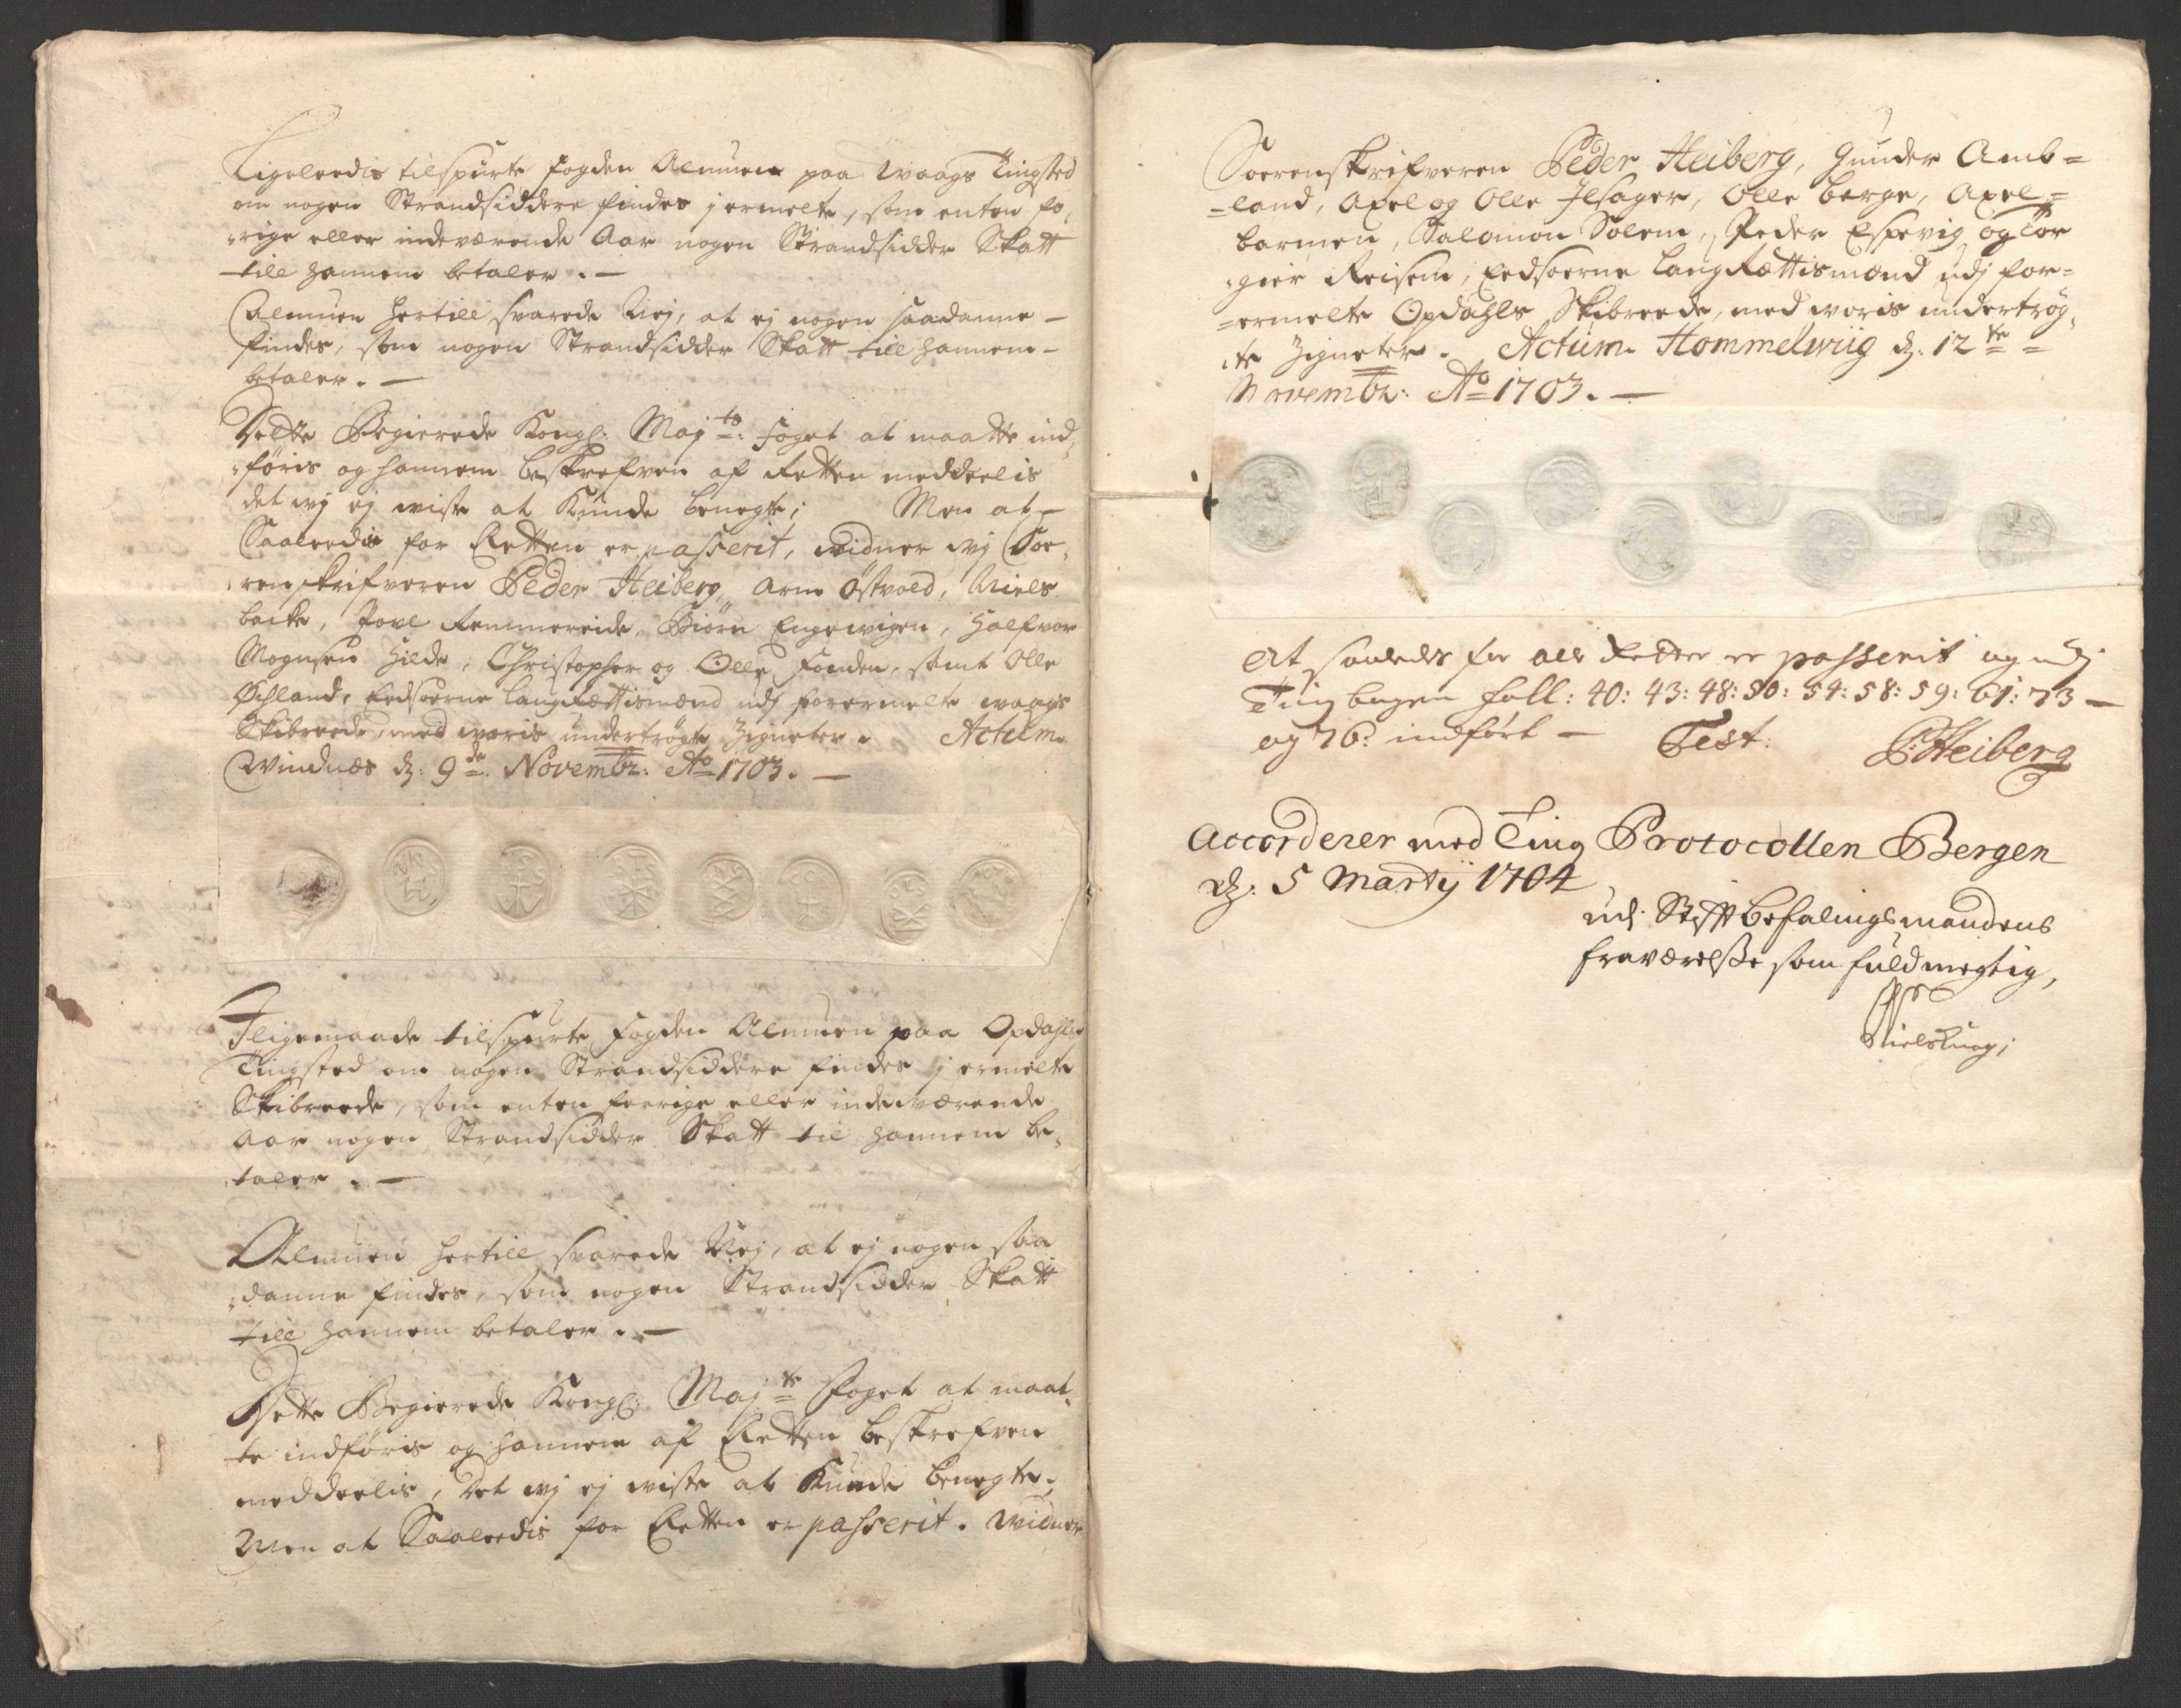 Ligeleedis tilspurte Fogden Almuen paa Waags Tingsted
om nogen Strandsiddere findes j ermelte, som enten fo,
,rige eller indeværende Aar nogen Strandsidder Skatt
till hannem betaler. —
Almuen hertill svarede Nej, at ej nogen saadanne —
findes, som nogen Strandsidder Skatt till hannem —
betaler. —
Dette Begierede Kongl: Maj ts: Foget at maatte ind,
,føris og hannem beskrefven af Retten meddeelis
det wj ej wiste at Kunde benegte; Men at —
Saaleedis for Retten er passerit, widner wj Soe,
,renskrifveren Peder Heiberg, Arne Østvold, Niels
backe, Povl Remmereide, Biørn Engewigen, Halfvor
Mognsen Hilde, Christopher og Olle Fonden, samt Olle
Øchland, Eedsoerne Laugrættismænd udj forermelte Waags
Skibreede, med woris undertrøgte Zigneter. Actum
Windnæs d: 9 de Novembr: Ao 1703. —
VN
H
Jligemaade tilspurte Fogden Almuen paa Opdahls
Tingsted om nogen Strandsiddere findes j ermelte
Skibreede, som enten forrige eller indeværende
Aar nogen Strandsidder Skatt til hannem be,
,taler. —
Almuen hertill svarede Nej, at ej nogen saa
,danne findes, som nogen Strandsidder Skatt
till hannem betaler. —
Dette Begierede Kongl: Maj ts Foget at maat,
te indføris og hannem af Retten beskrefven
meddeelis, Det wj ej wiste at Kunde benegte.
Men at Saaleedis for Retten er passerit. Widner
Soerenskrifveren Peder Heiberg, Gunder Amb=
=land, Axel og Olle Jlsager, Olle Berge, Axel=
barmen, Salomon Solem, Peder Espevig og Tor
,gier Reisem, Eedsoerne Laugrættismænd udj for=
=ermelte Opdahls Skibreede, med woris undertrøg,
,te Zigneter. Actum Hommelwiig d: 12 te
Novembr: Ao 1703. —
At saaledes for alle Retter er passerit og udj
Tingbogen foll: 40: 43: 48: 50: 54: 58: 59: 61: 73 —
og 76: indført — Test:
PHeiberg
Accorderer med Ting Protocollen Bergen
d: 5 Martij 1704
udj Stiftbefalingsmandens
fraværelsse som fuldmegtig,
Niels Knag;